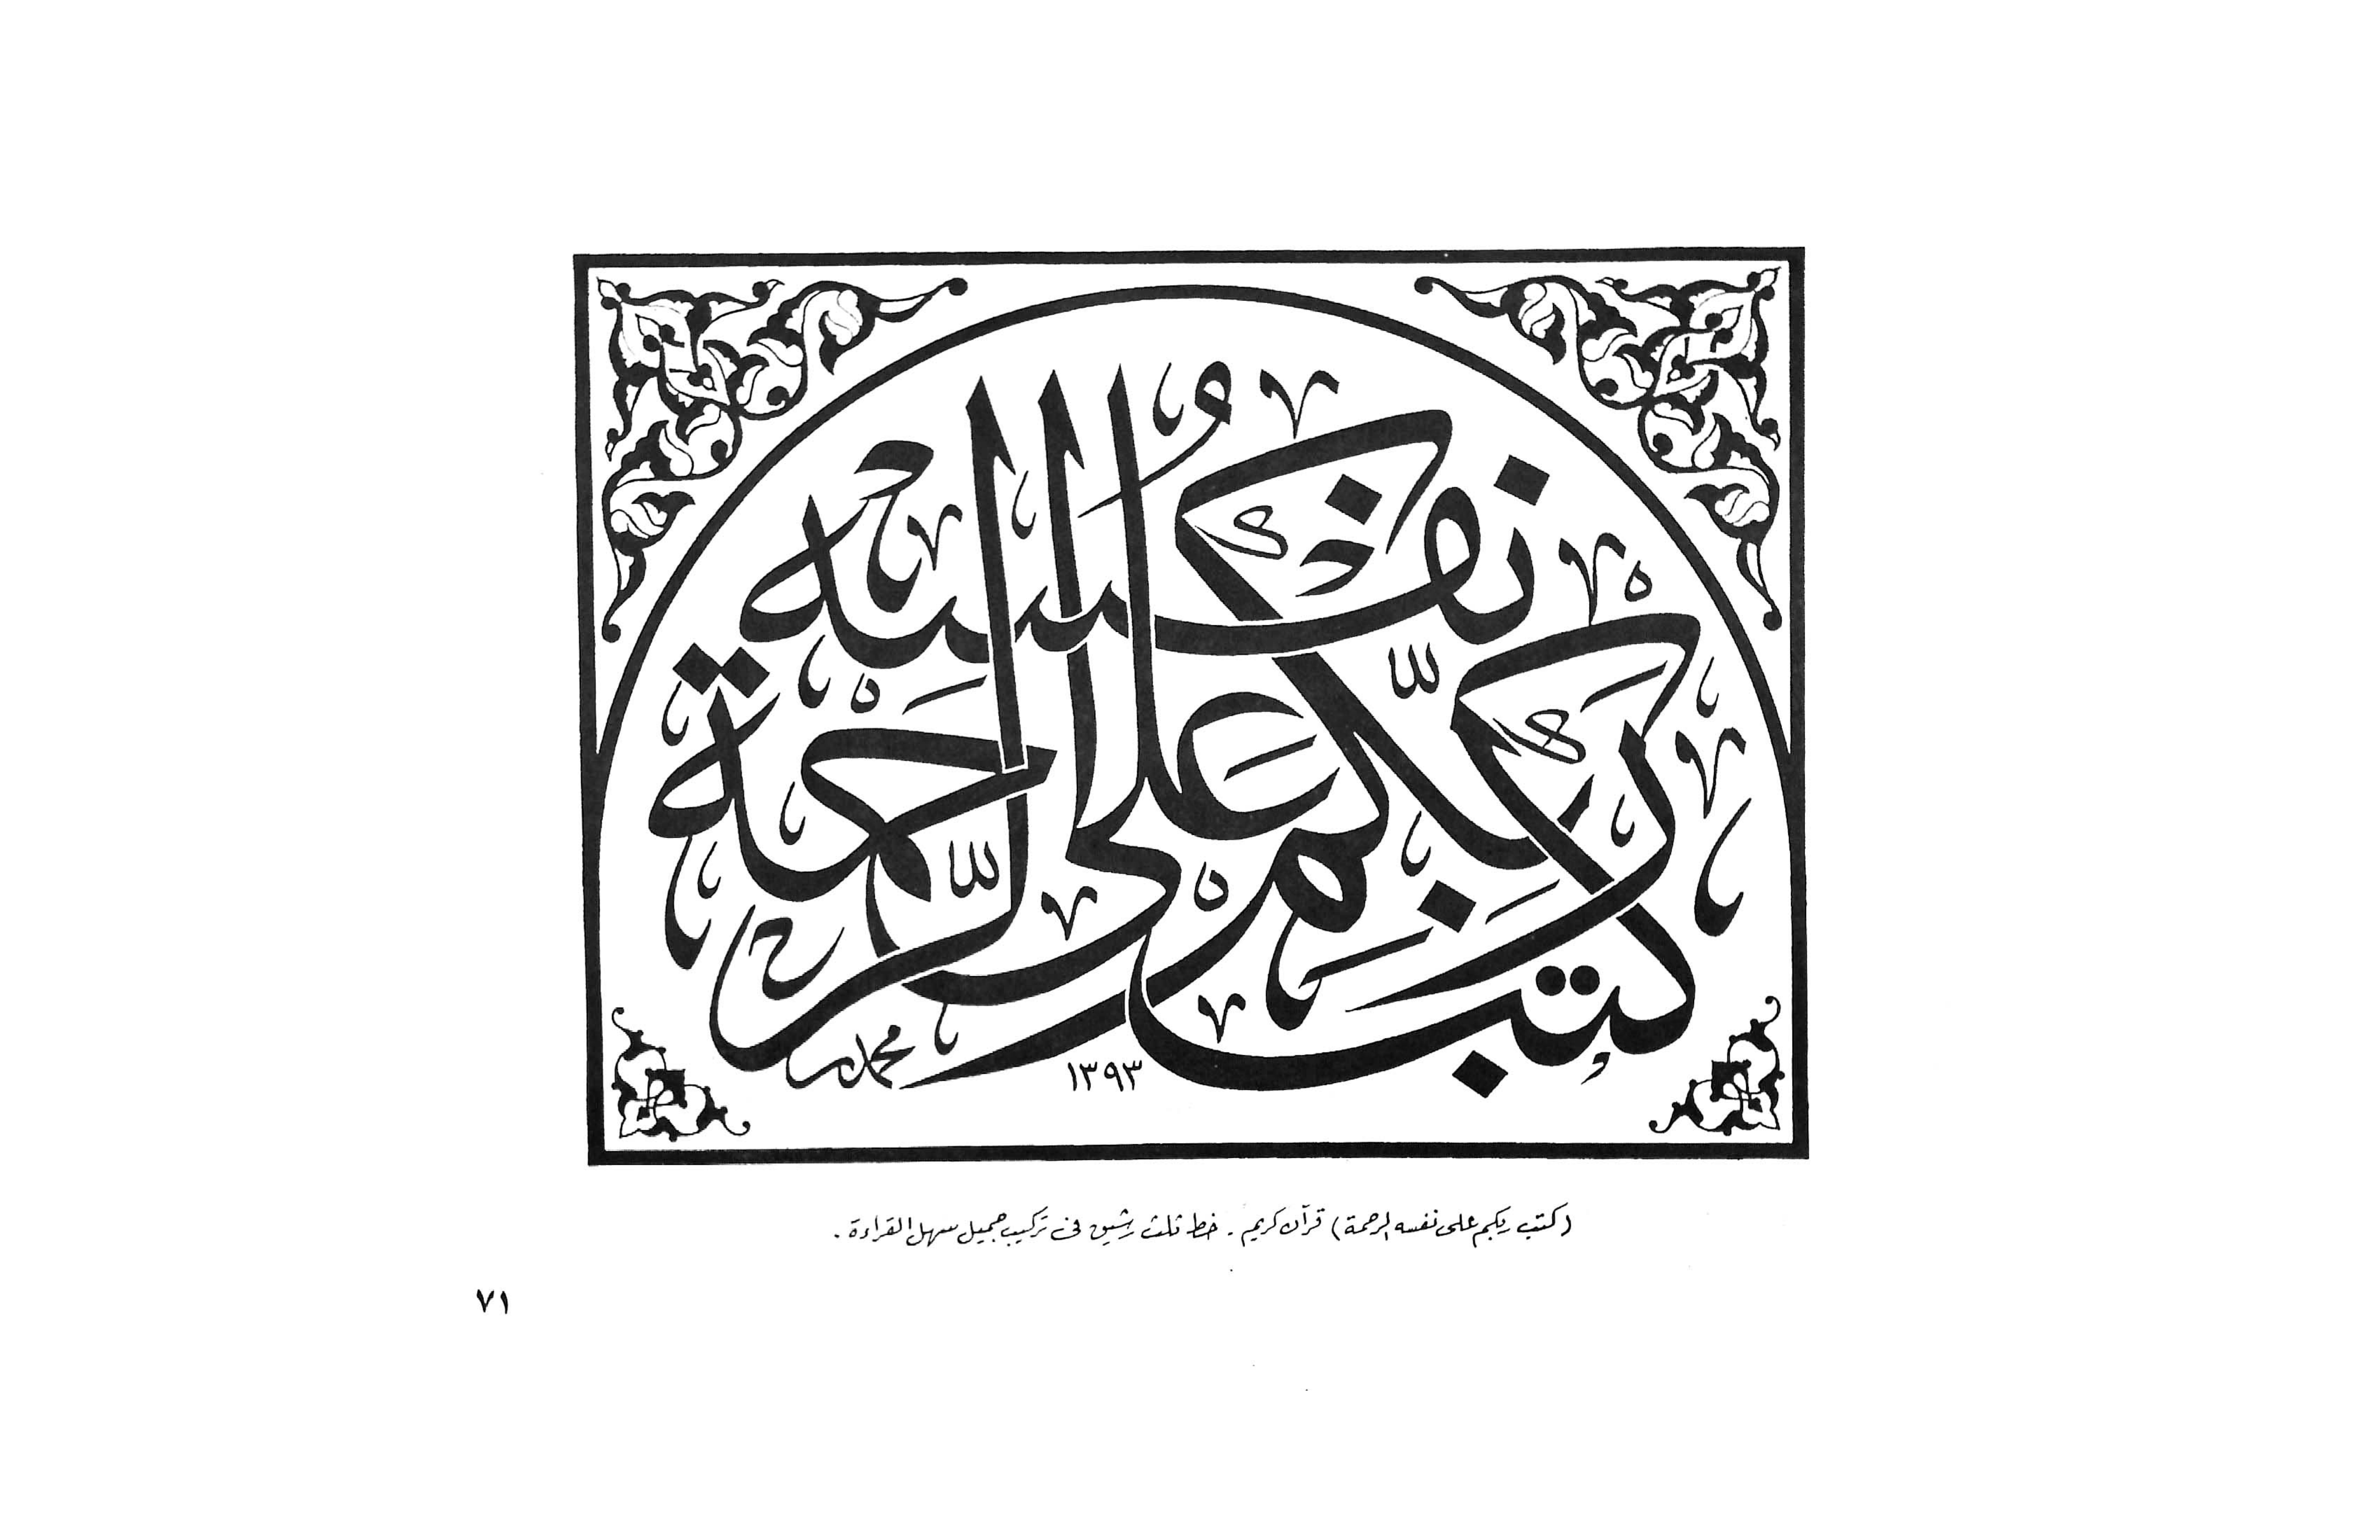 كتب ربكم على نفسه الرحمة
محمد
١٣٩٣
(كتب ربكم على نفسه الرحمة) قرآن كريم . خط ثلث رشيق في تركيب جميل سهل القراءة .
٧١